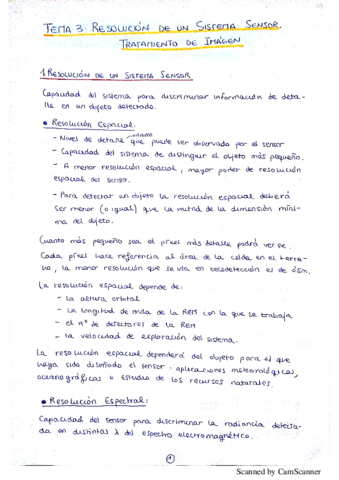 TEMA 3: RESOLUCIÓN DE UN SISTEMA SENSOR.
TRATAMIENTO DE IMÁGEN
1. RESOLUCIÓN DE UN SISTEMA SENSOR
Capacidad del sistema para discriminar información de deta-
lle en un objeto detectado.
• Resolución Espacial:
- Nivel de detalle que puede ser observado por el sensor
- Capacidad del sistema de distinguir el objeto más pequeño.
- A menor resolución espacial, mayor poder de resolución
espacial del sensor.
- Para detectar un objeto la resolución espacial deberá
ser menor (o igual) que la mitad de la dimensión míni-
ma del objeto.
Cuanto más pequeño sea el píxel más detalle podrá verse.
Cada píxel hace referencia al área de la celda en el terre-
no, la menor resolución que se usa en teledetección es de 0,5m.
La resolución espacial depende de:
- la altura orbital
- la longitud de onda de la REM con la que se trabaja
- el nº de detectores de la REM
- la velocidad de exploración del sistema.
La resolución espacial dependerá del objeto para el que
haya sido diseñado el sensor: aplicaciones meteorológicas,
oceanográficas o estudio de los recursos naturales.
• Resolución Espectral:
Capacidad del sensor para discriminar la radiancia detecta-
da en distintas λ del espectro electromagnético.
1
Scanned by CamScanner